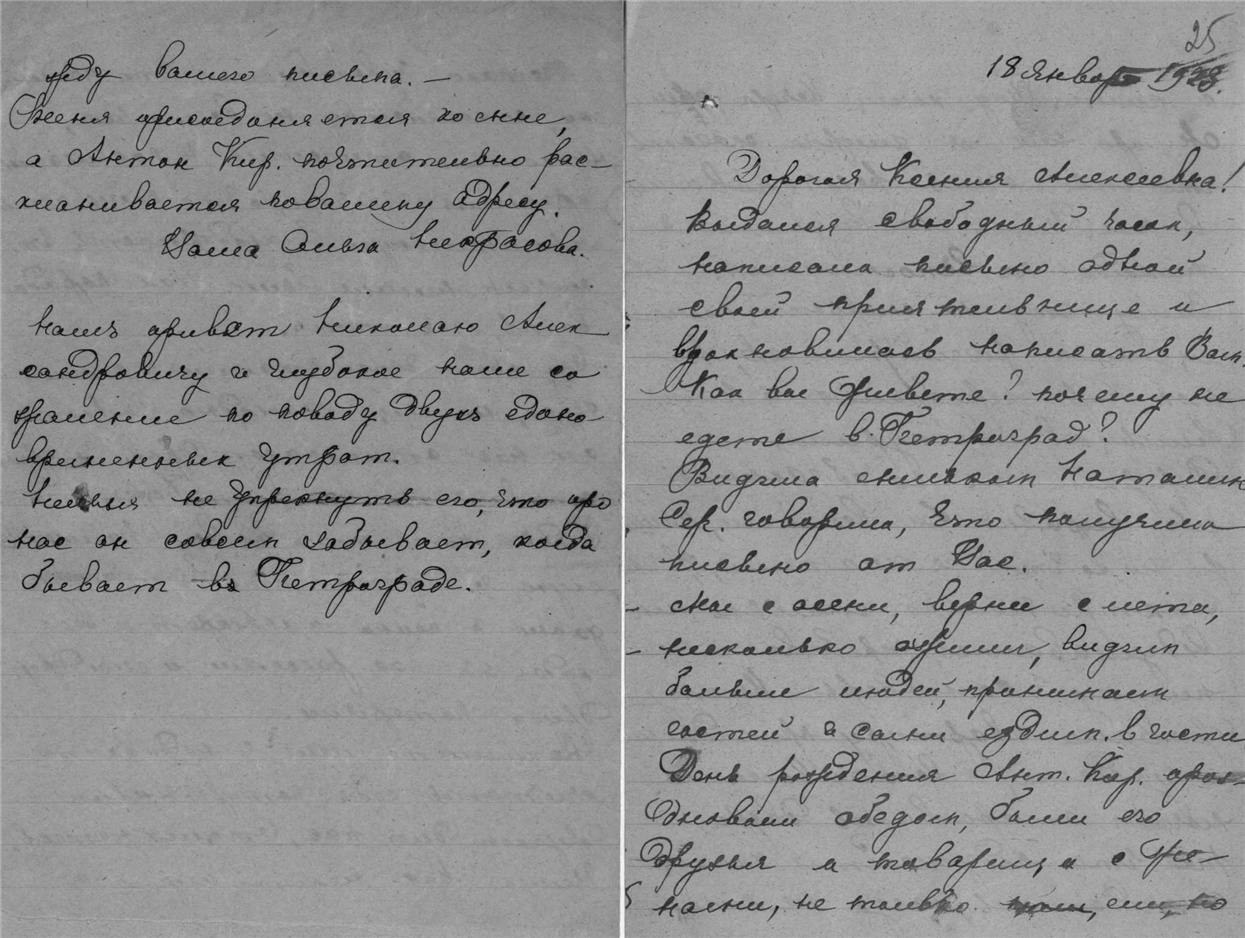 жду вашего письма. —
Женя присоединяется ко мне,
а Антон Кар. почтительно рас-
кланивается по вашему адресу.
Ваша Ольга Некрасова.
Нашъ привет Николаю Алек
сандровичу и глубокое наше со
жаление по поводу двухъ едино
временных утрат.
Нельзя не упрекнуть его, что про
нас он совсем забывает, когда
бывает в Петрограде.
25
18 январ 1923.
Дорогая Ксения Алексеевна!
Выдался свободный часик,
написала письмо одной
своей приятельнице и
вдохновилась написать Вам.
Как вы живете? почему не
едете в Петроград?
Видела мельком Наталию
Сер. говорила, что получила
письмо от Вас.
Мы с осени, верней с лета,
несколько ожили, видим
больше людей, принимаем
гостей и сами ездим в гости
День рождения Ант. Кар. праз-
дновали обедом, были его
друзья и товарищи с же-
нами, не только